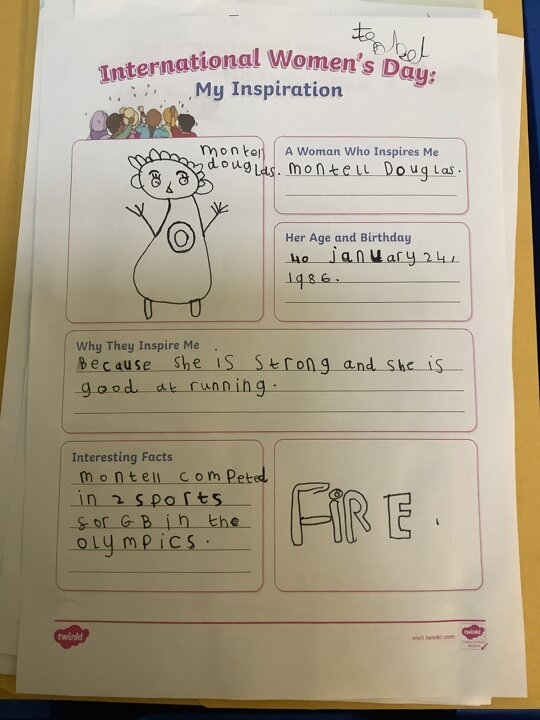 International Women's Day:
My Inspiration
montell
douglas.
A Woman Who Inspires Me
montell Douglas.
Her Age and Birthday
40 january 24,
1986.
Why They Inspire Me
Because she is strong and she is
good at running.
Interesting Facts
montell competed
in 2 sports
for GB in the
OLYMPICS.
FIRE.
twinkl
visit twinkl.com
twinkl